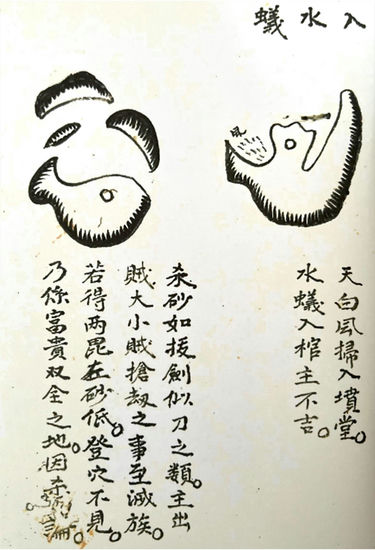 入水蟻
天白風掃入墳堂。
水蟻入棺主不吉。
杀砂如拔劍似刀之類。主出
賊大小賊搶刼之事至滅族。
若得两毘在砂低。登穴不見。
乃係富貴双全之地。因杀論。